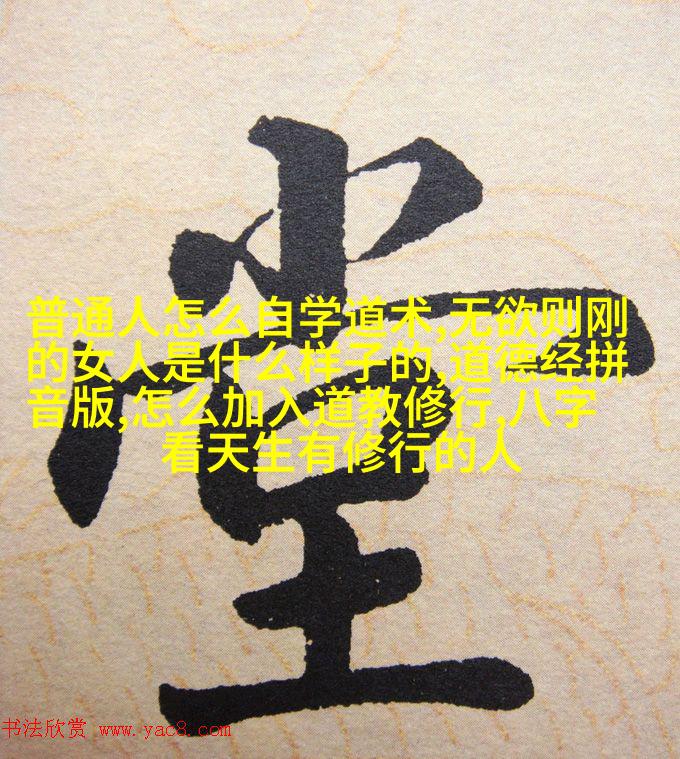 堂
普通人怎么自学道术,无欲则刚
的女人是什么样子的,道德经拼
音版,怎么加入道教修行,八字
看天生有修行的人
书法欣赏 www.yac8.com